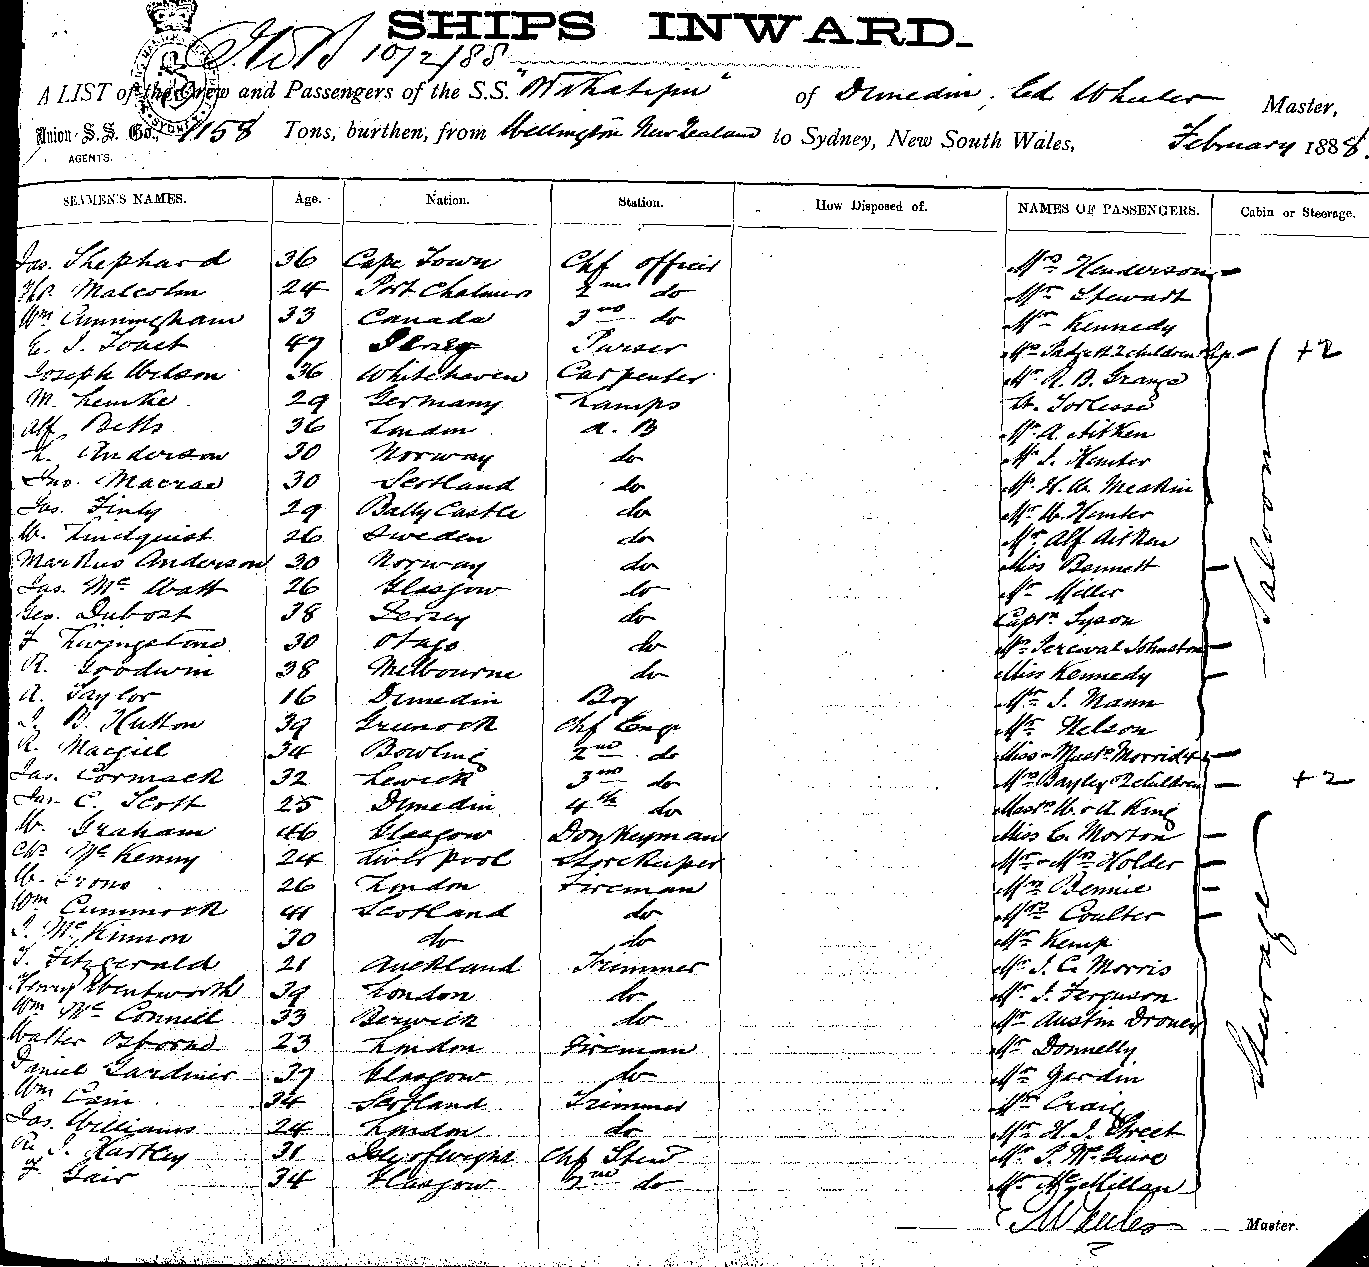 SHIPS INWARD.
10/2/88
A LIST of the Crew and Passengers of the S.S. "Wakatipu" of Dunedin, Ed Wheeler Master,
Union S.S. Co., 1158 Tons, burthen, from Wellington New Zealand to Sydney, New South Wales, February 1888.
AGENTS.
SEAMEN'S NAMES. Age. Nation. Station. How Disposed of. NAMES OF PASSENGERS. Cabin or Steerage.
Jas. Shephard 36 Cape Town Chf officer Mrs Henderson
Malcolm 24 Port Chalmers 2nd do Mr Stewart
Wm Cunningham 33 Canada 3rd do Mr Kennedy
E. J. 47 Jersey Purser Mrs Padgett 2 children +2
Joseph Wilson 36 Whitehaven Carpenter Mr R. B. Grange
M. Lemke 29 Germany Lamps Torlesse
Alf Betts 36 London A. B Mr A. Aitken
Anderson 30 Norway do Mr J. Hunter
Jno. Macrae 30 Scotland do Mr H. W. Meakin
Jas. Finly 29 Bally Castle do Mr W. Hunter
W. Lindquist 26 Sweden do Mr Alf Aitken
Markus Anderson 30 Norway do Miss Bennett
Jas. Mc Watt 26 Glasgow do Mr Miller
Geo. Dubost 38 Jersey do Captn Tyson
F. Livingstone 30 Otago do Mrs Percival Johnston
R. Goodwin 38 Melbourne do Miss Kennedy
Saloon
A. Taylor 16 Dunedin Boy Mr J. Mann
J. B. Hutton 39 Greenock Chf Engr Mr Nelson
R. Macgill 34 Bowling 2nd do Miss & Mastr Morris
Jas. Cormack 32 Lewick 3rd do Mrs Bayley 2 children +2
Jas. C. Scott 25 Dunedin 4th do Mastrs W. & A. King
W. Graham 46 Glasgow Donkeyman Miss C. Morton
Chs Mc Kenny 24 Liverpool Storekeeper Mr & Mrs Holder
W. Irons 26 London Fireman Mrs Bennie
Wm Cummock 41 Scotland do Mrs Coulter
J. McKinnon 30 do do Mr Kemp
T. Fitzgerald 21 Auckland Trimmer Mr J. C. Morris
Henry Wentworth 39 London do Mr J. Ferguson
Wm Mc Connell 33 Berwick do Mr Austin Droney
Steerage
Walter Osborne 23 London Fireman Mr Donnelly
Daniel Gardiner 37 Glasgow do Mr Gardin
Wm Cam 34 Scotland Trimmer Mr Craig
Jas. Williams 24 London do Mr H. J. Street
R. J. Hartley 31 Isle of wight Chf Stewd Mr P. McGuire
F. Gair 34 Glasgow 2nd do Mr McMillan
Wheeler Master.